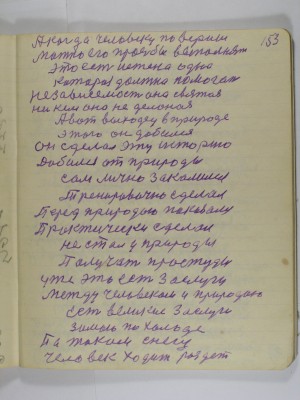 А когда человеку поверим
153
можно его просьбы выполнят
Это ест истена одна
Которая должна помогат
независемост она святая
ни кем она не деланая
А вот выходу в природе
этого он добился
Он сделал эту историю
Добился от природы
сам лично Закалился
Тренеровачно сделал
Перед природою показал
Практически сделал
не стал у природы
Получат простуды
уже это ест Заслуги
Между человеком и природою
ест великие Заслуги
Зимою по холоде
Па таком снегу
человек ходит